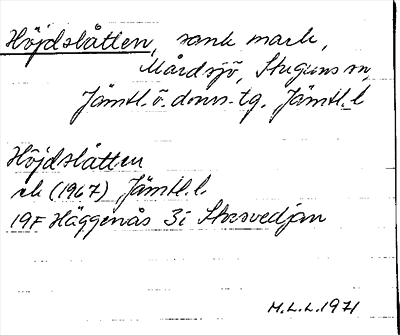 Höjdslåtten, sank mark,
Mårdsjö, Stuguns sn,
Jämtl. ö. doms-tg, Jämtl. l
Höjdslåtten
ek (1967) Jämtl. l.
19F Häggenås 3i Storsvedjan
M.L.L. 1971